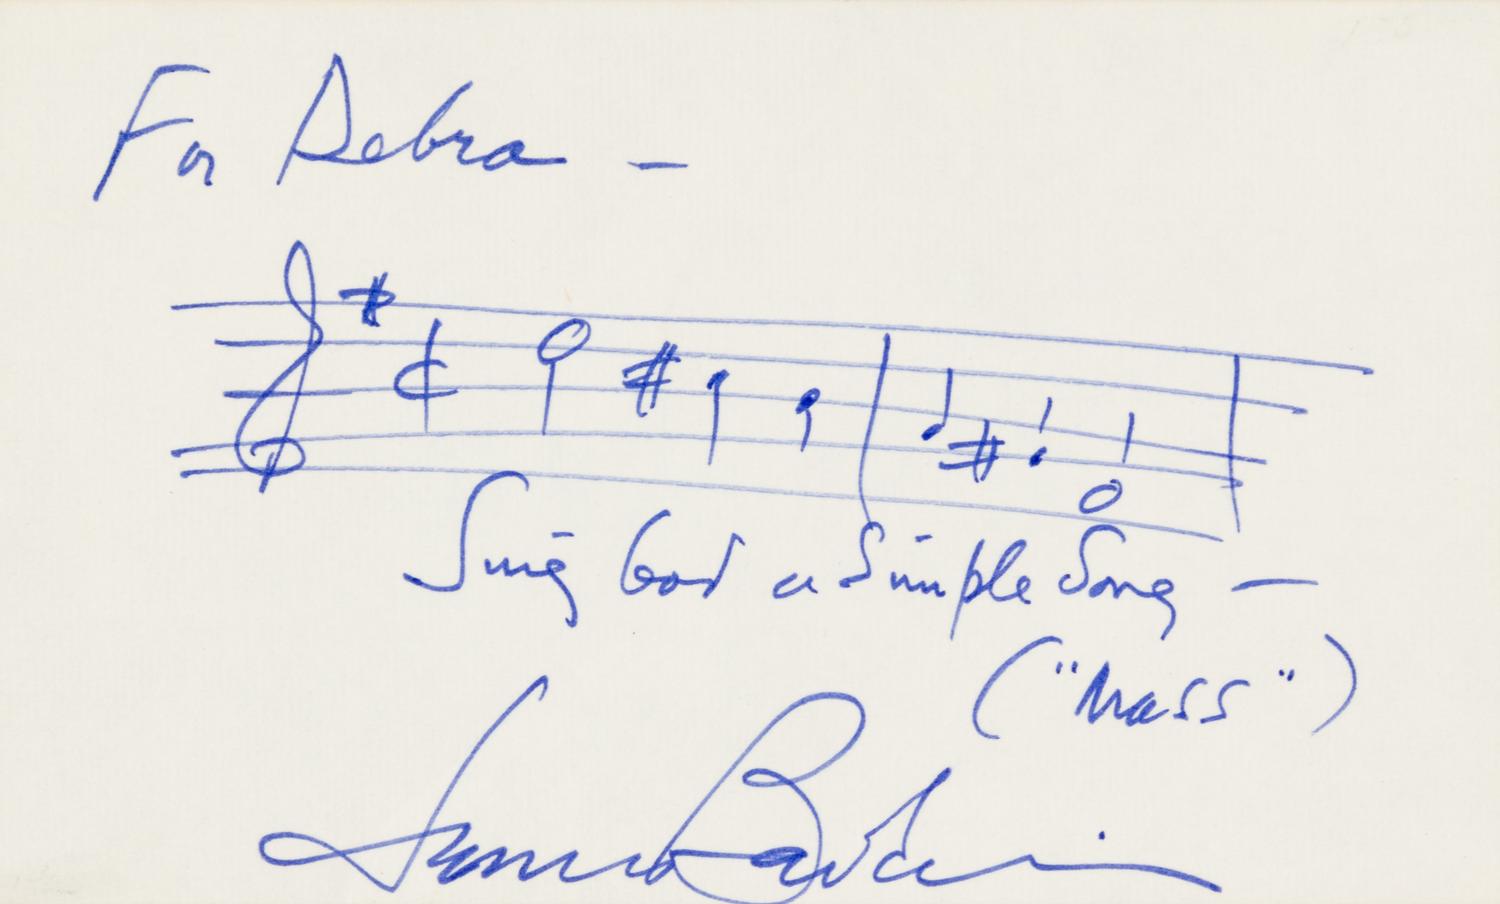 For Debra –
Sing God a Simple Song –
("Mass")
Leonard Bernstein